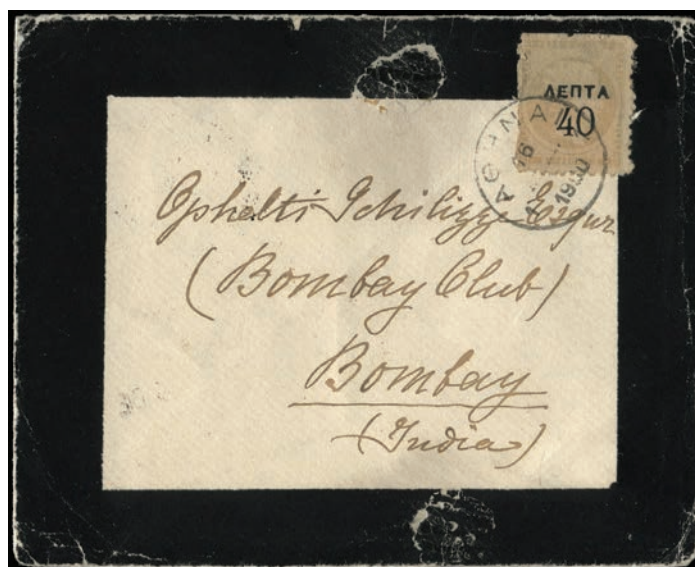 ΛΕΠΤΑ
40
ΑΘΗΝΑΙ
1900
Ophelti Schilizzi Esqur
(Bombay Club)
Bombay
(India)